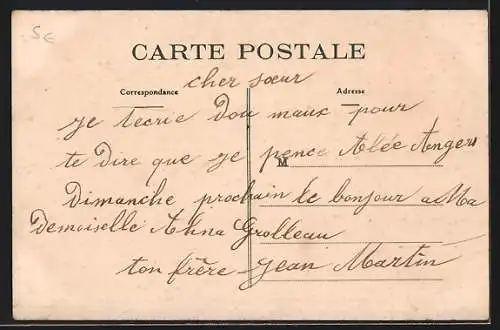 5€
CARTE POSTALE
Correspondance
Adresse
cher sœur
je tecrie Dou maux pour
te Dire que je pence Alée Angers
M
Dimanche prochain le bonjour a Ma
Demoiselle Alina Grolleau
ton frère Jean Martin